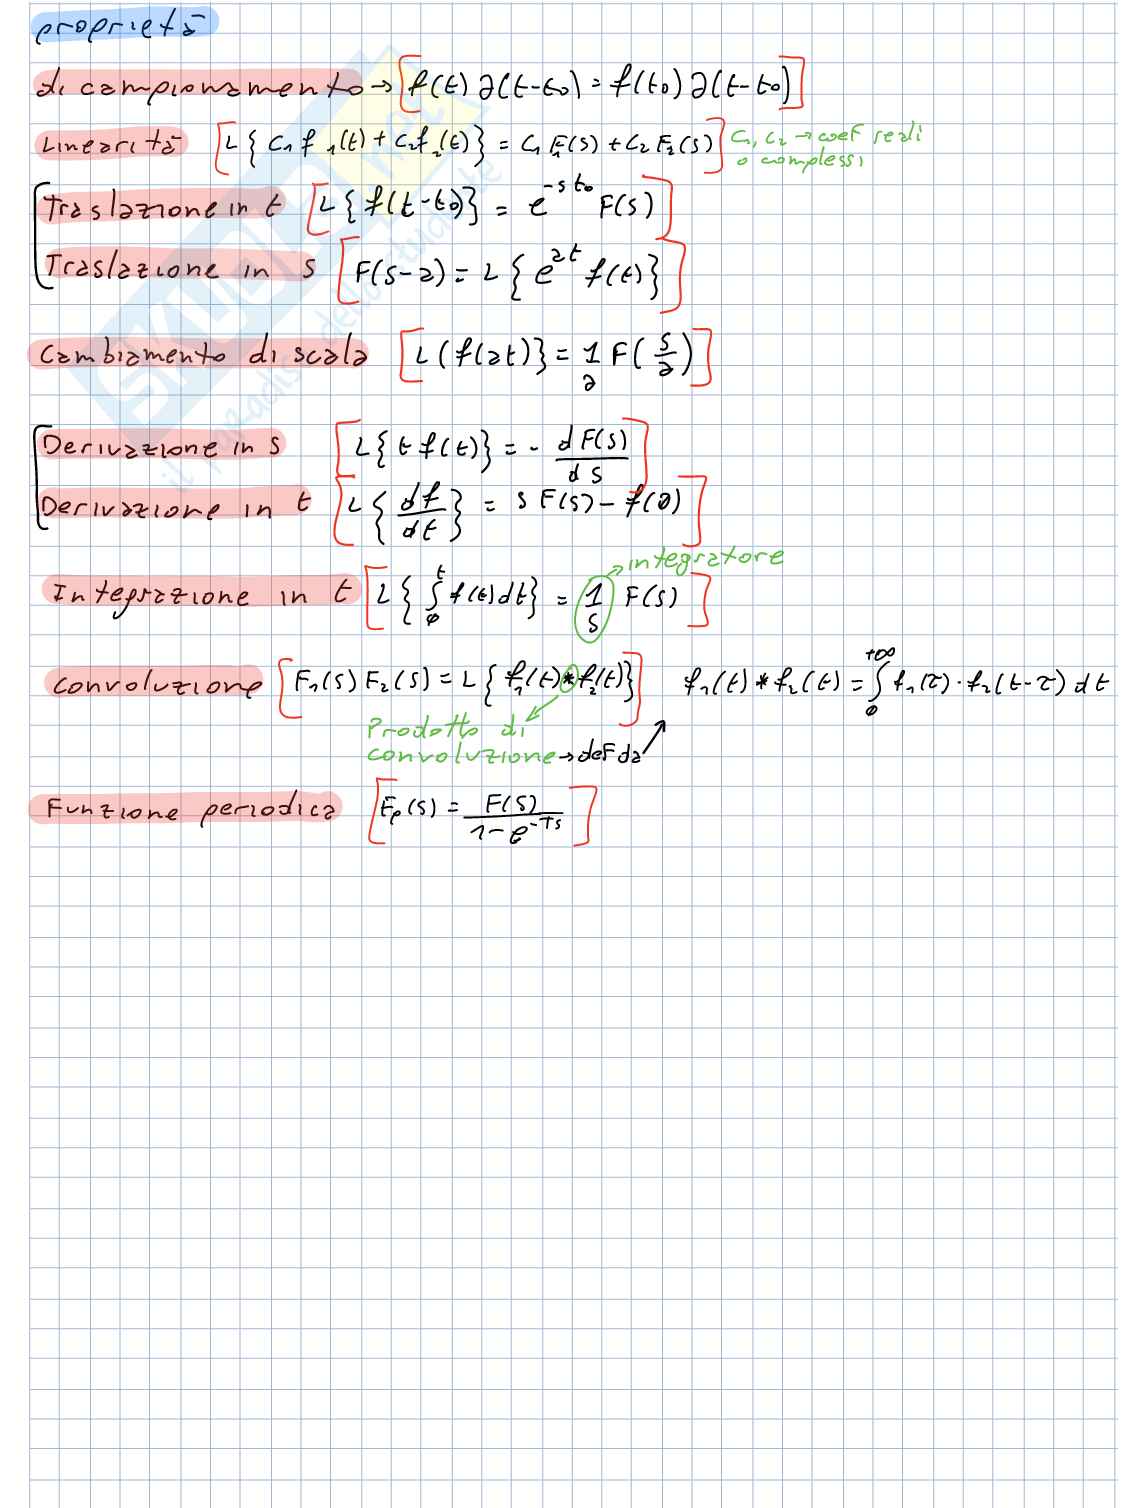 proprietà
di campionamento → [f(t) ∂(t-t₀) = f(t₀) ∂(t-t₀)]
Linearità [L{C₁f₁(t) + C₂f₂(t)} = C₁F₁(s) + C₂F₂(s)] C₁, C₂ → coef reali
o complessi
Traslazione in t [L{f(t-t₀)} = e^-st₀ F(s)]
Traslazione in s [F(s-a) = L{e^at f(t)}]
Cambiamento di scala [L(f(at)} = 1/a F(s/a)]
Derivazione in s [L{t f(t)} = - dF(s)/ds]
Derivazione in t [L{df/dt} = s F(s) - f(0)]
→ integratore
Integrazione in t [L{∫₀^t f(t)dt} = 1/s F(s)]
convoluzione [F₁(s) F₂(s) = L{f₁(t) * f₂(t)}] f₁(t) * f₂(t) = ∫₀^+∞ f₁(τ) · f₂(t-τ) dt
Prodotto di
convoluzione → def da
Funzione periodica [Fp(s) = F(s)/1-e^-Ts]
SKUOLA.net
il paradiso dello studente